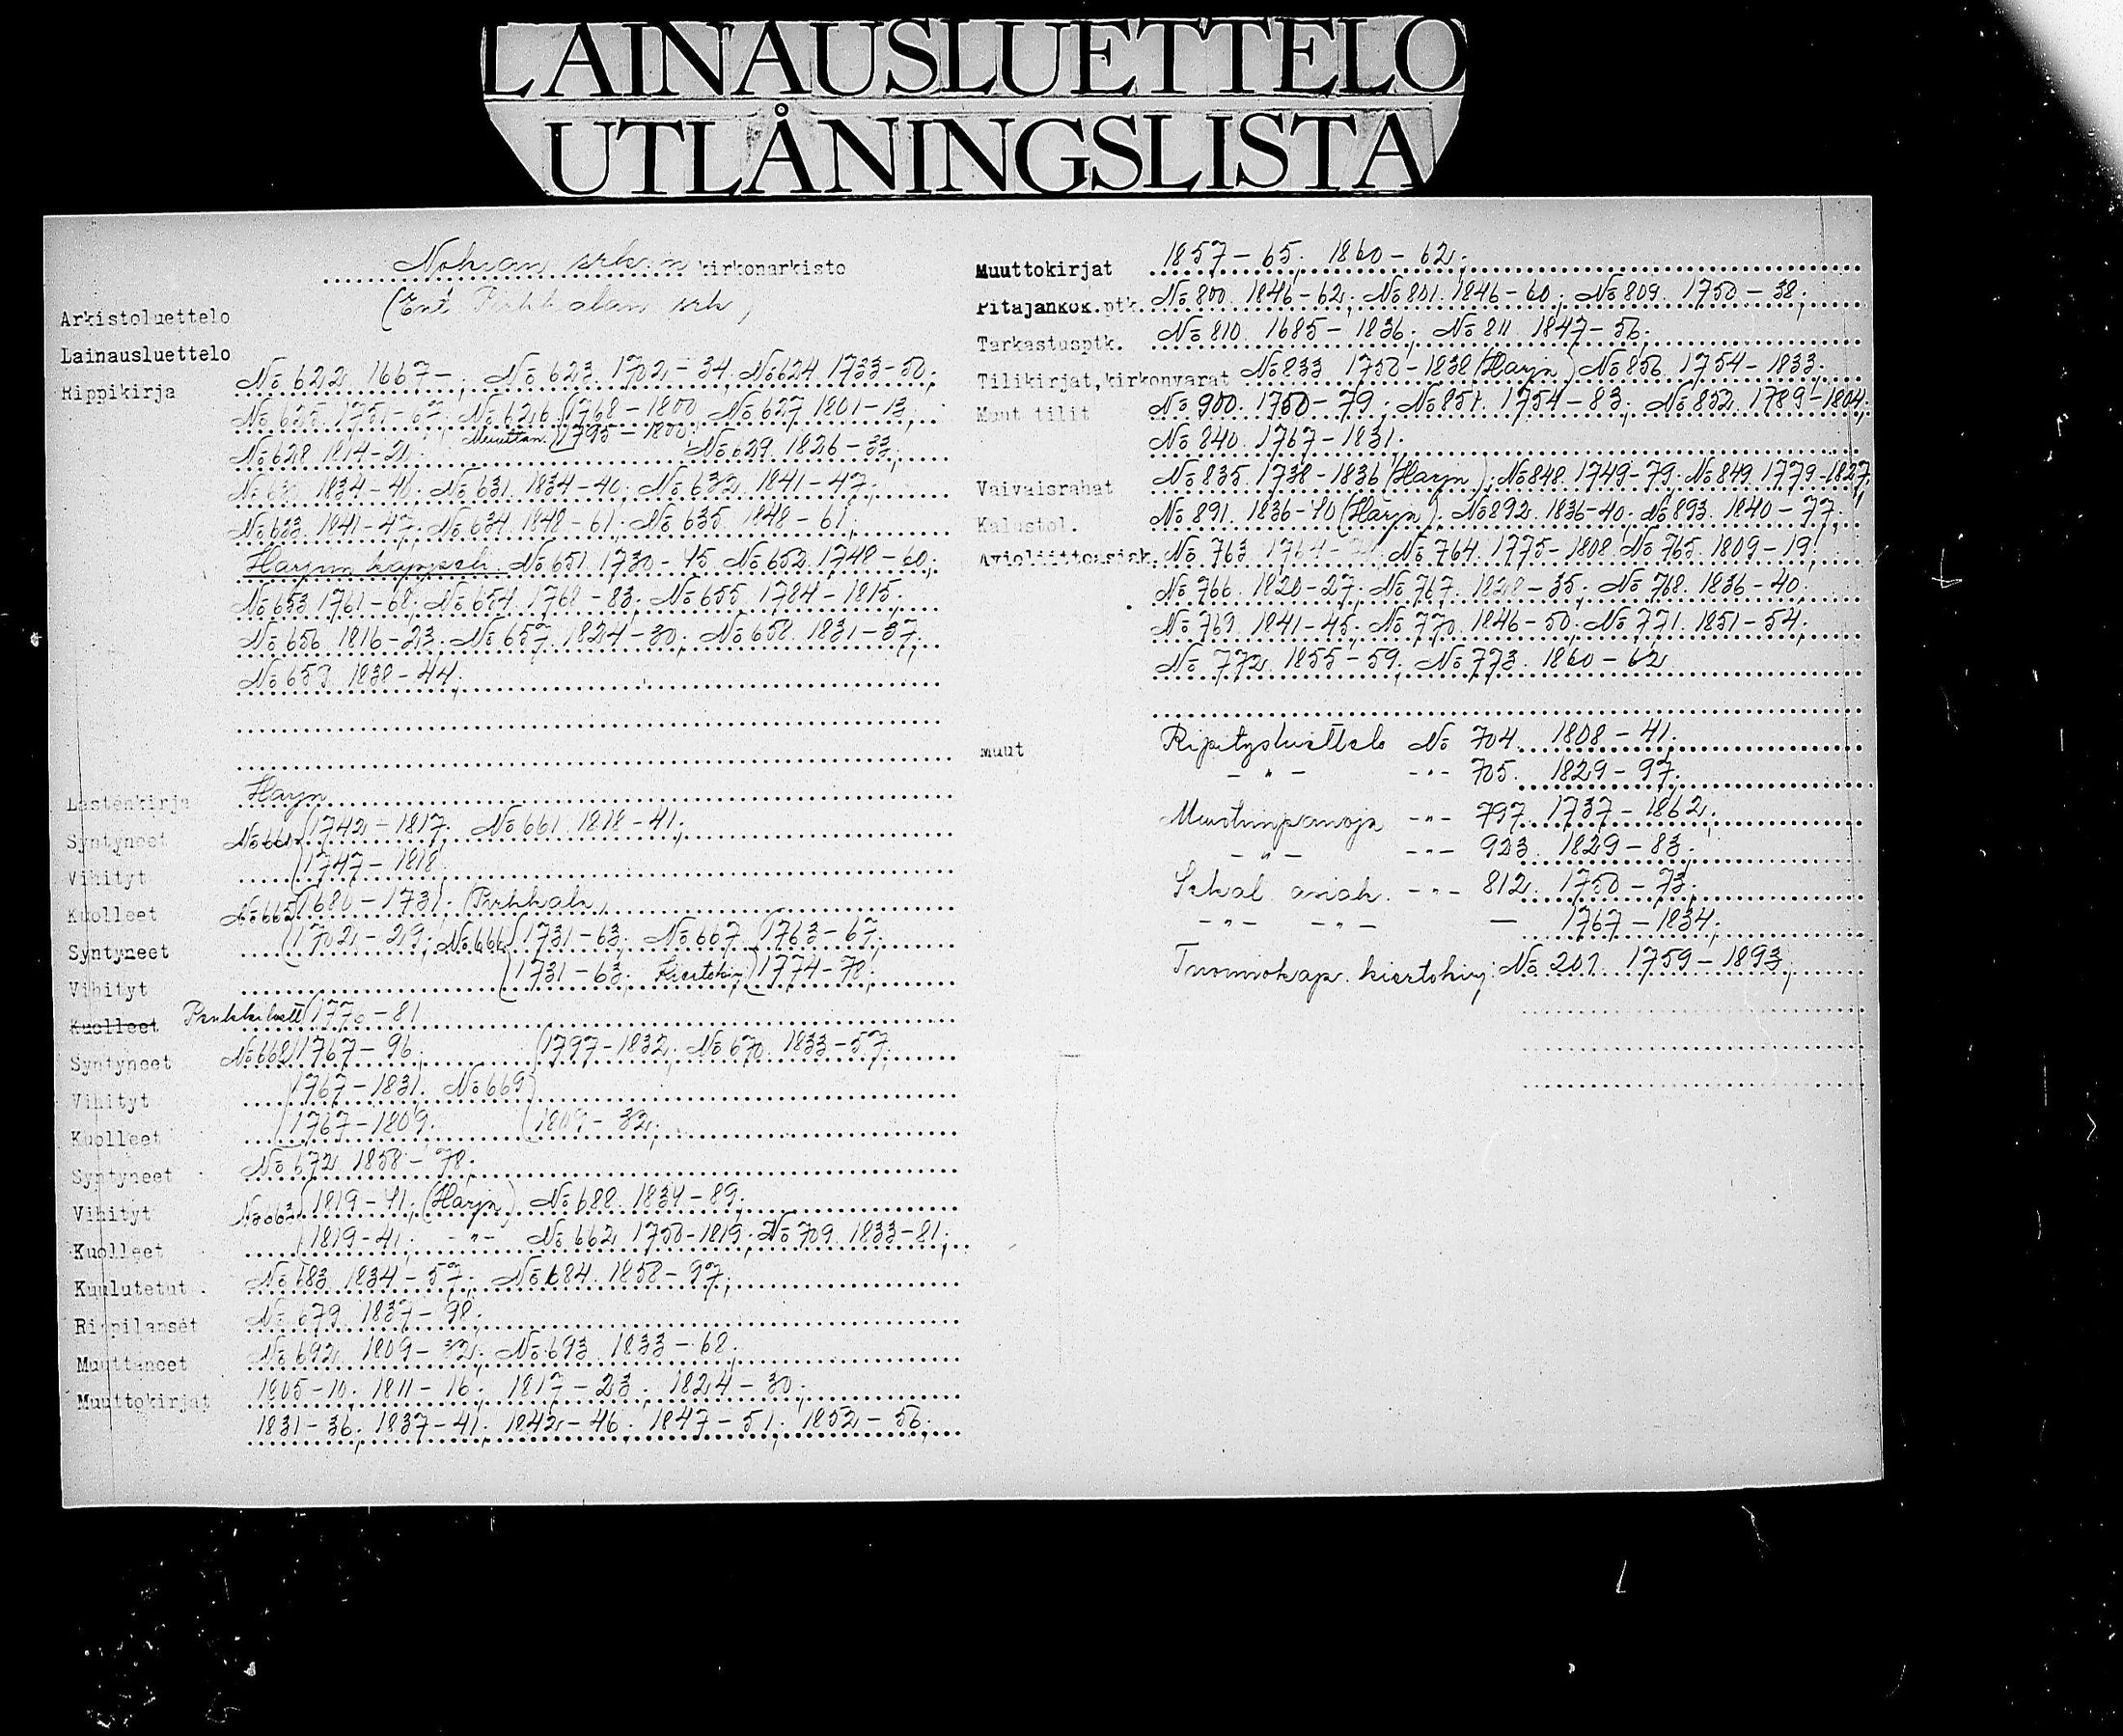 LAINAUSLUETTELO
UTLÅNINGSLISTA
Nokian srk:n kirkonarkisto
(Ent. Pirkkalan srk)
Arkistoluettelo
Lainausluettelo
Rippikirja No 622 1667-; No 623. 1702-34; No 624 1733-50;
No 625 1751-67; No 626 (1768-1800 No 627 1801-13;
No 628 1814-21; Muuttan. (1795-1800; No 629 1826-33;
No 630 1834-40; No 631 1834-40; No 632 1841-47;
No 633 1841-47; No 634 1848-61; No 635 1848-61;
Harjun kappeli. No 651 1730-45 No 652 1748-60;
No 653 1761-68; No 654 1768-83; No 655 1784-1815;
No 656 1816-23; No 657 1824-30; No 658 1831-37;
No 659 1838-44;
Lastenkirja Harjn
Syntyneet No 660 (1742-1817; No 661 1818-41;
Vihityt (1747-1818
Kuolleet No 665 (1680-1731; (Pirkkala)
Syntyneet (1702-29; No 666 (1731-63; No 667 (1763-67;
Vihityt (1731-63; Kiertokirj (1774-78;
Kuolleet (1770-81
Syntyneet No 668 (1767-96; (1797-1832; No 670 1833-57;
Vihityt 1767-1831. No 669
Kuolleet (1767-1809; (1809-32;
Syntyneet No 672 1858-78;
Vihityt No 663 (1819-41; (Harjn) No 688 1834-89;
Kuolleet (1819-41; -"- No 662 1750-1819; No 709 1833-81;
Kuulutetut No 683 1834-57; No 684 1858-97;
Rippilapset No 679 1837-98;
Muuttaneet No 692 1809-32; No 693 1833-68;
Muuttokirjat 1805-10; 1811-16; 1817-23; 1824-30;
1831-36; 1837-41; 1842-46; 1847-51; 1852-56;
Muuttokirjat 1857-65; 1860-62;
Pitäjänkok.ptk. No 800 1846-62; No 801 1846-60; No 809 1750-38;
Tarkastusptk. No 810 1685-1836; No 811 1847-56;
Tilikirjat, kirkonvarat No 833 1750-1838 (Harjn) No 856 1754-1833;
Muut tilit No 900 1750-79; No 851 1754-83; No 852 1789-1804;
No 840 1767-1831.
Vaivaisrahat No 835 1738-1836 (Harjn); No 848 1749-79; No 849 1779-1827;
Kalustol. No 891 1836-40 (Harjn); No 892 1836-40; No 893 1840-77;
Avioliittoasiak. No 763 1764- No 764 1775-1808 No 765 1809-19;
No 766 1820-27; No 767 1828-35; No 768 1836-40;
No 769 1841-45; No 770 1846-50; No 771 1851-54;
No 772 1855-59; No 773 1860-62
Muut Ripitysluettelo No 704 1808-41;
-"- -"- 705 1829-97;
Muistiinpanoja -"- 797 1737-1862;
-"- -"- 923 1829-83;
Sekal asiak. -"- 812 1750-73;
-"- -"- - 1767-1834;
Tuomiokap. kiertokirj: No 201 1759-1893;